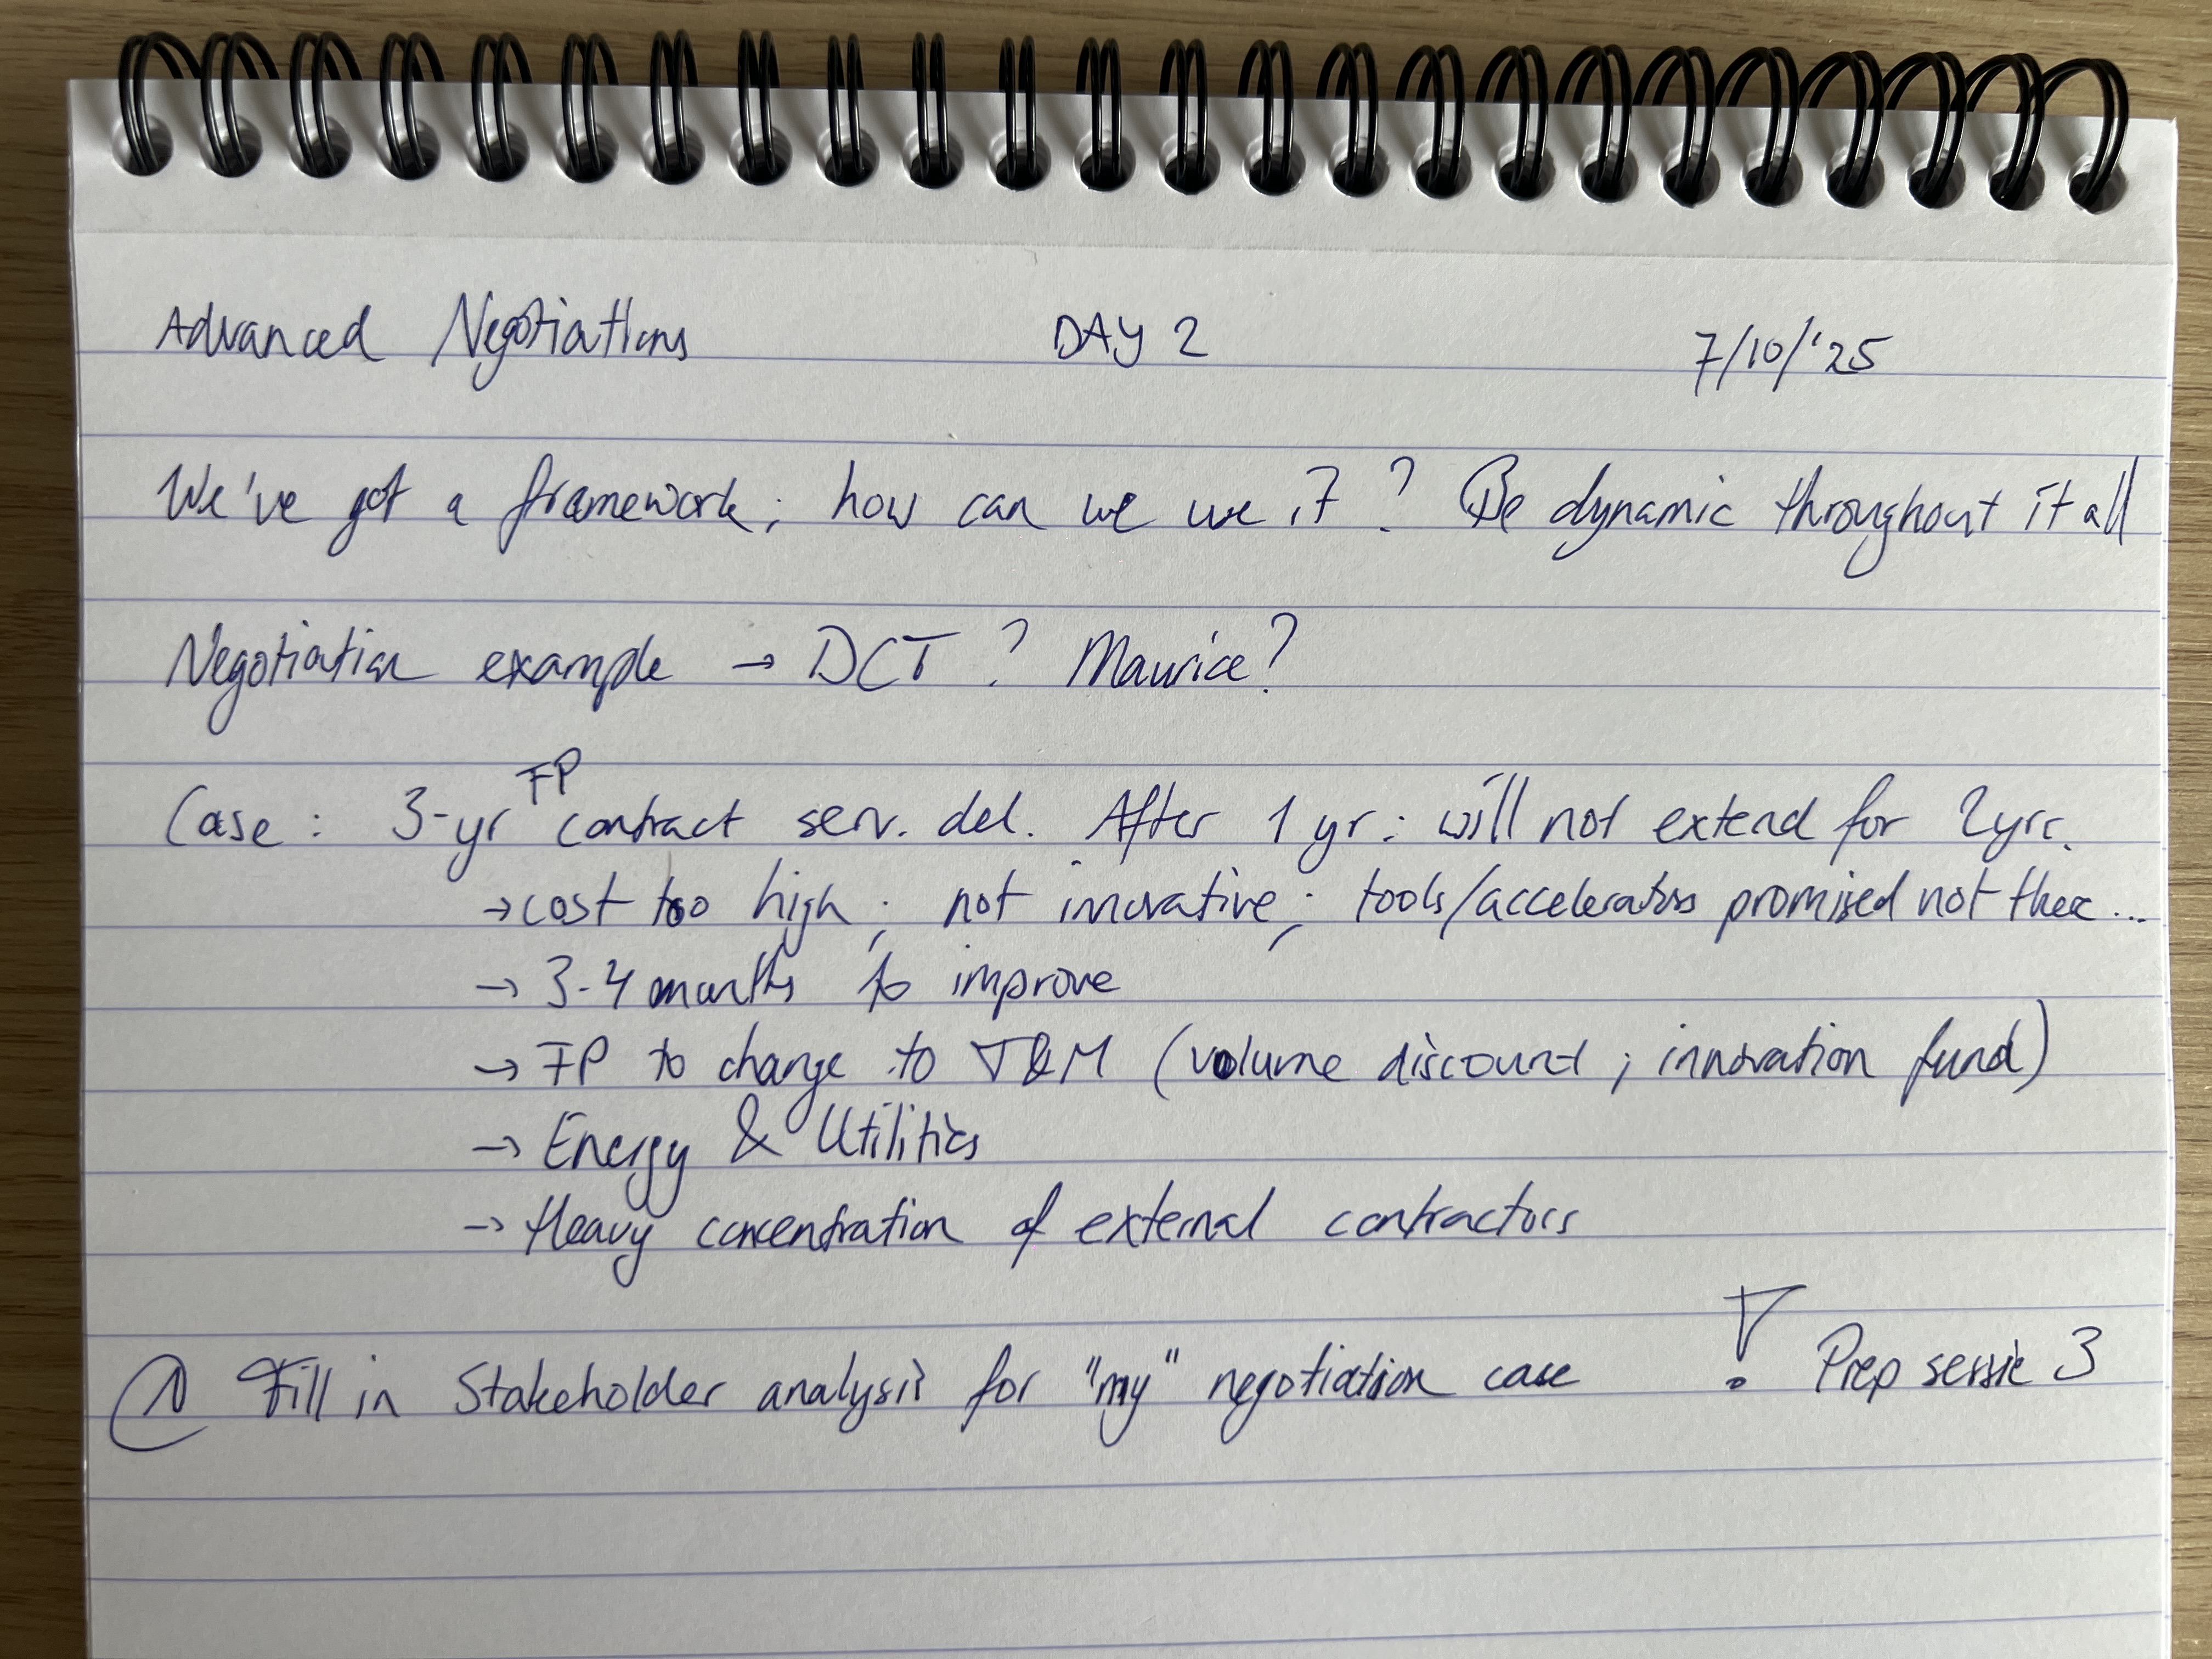 Advanced Negotiations DAY 2 7/10/'25
We've got a framework; how can we use it? Be dynamic throughout it all
Negotiation example → DCT? Maurice?
Case: 3-yr FP contract serv. del. After 1 yr: will not extend for 2yrs.
→ cost too high; not innovative; tools/accelerators promised not there...
→ 3-4 months to improve
→ FP to change to T&M (volume discount; innovation fund)
→ Energy & Utilities
→ Heavy concentration of external contractors
Fill in Stakeholder analysis for "my" negotiation case ! Prep sessie 3